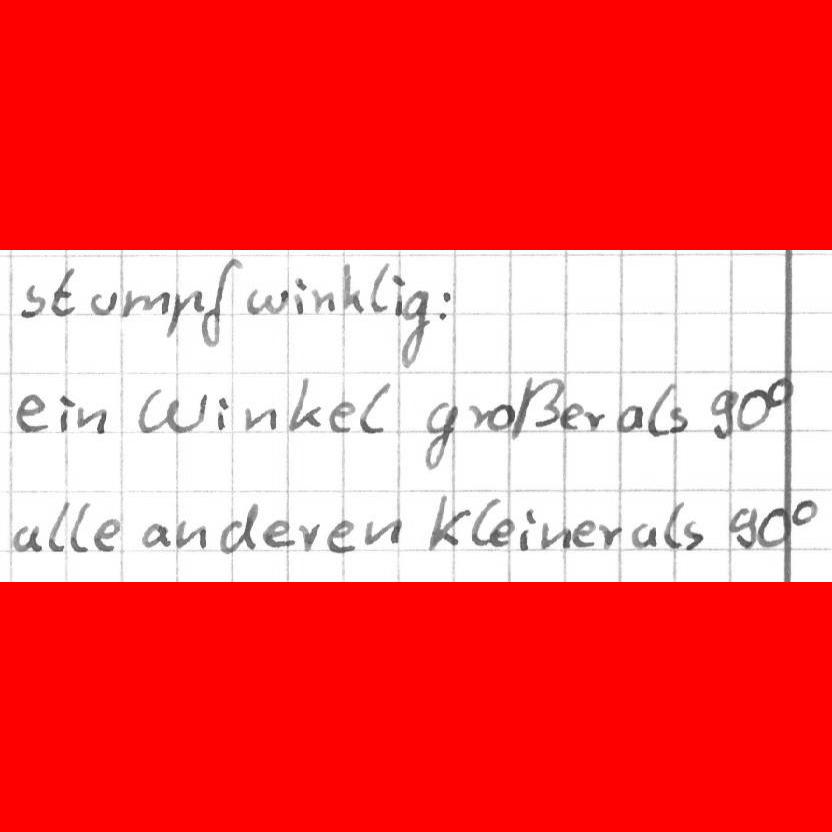 stumpfwinklig:
ein Winkel großer als 90°
alle anderen kleiner als 90°